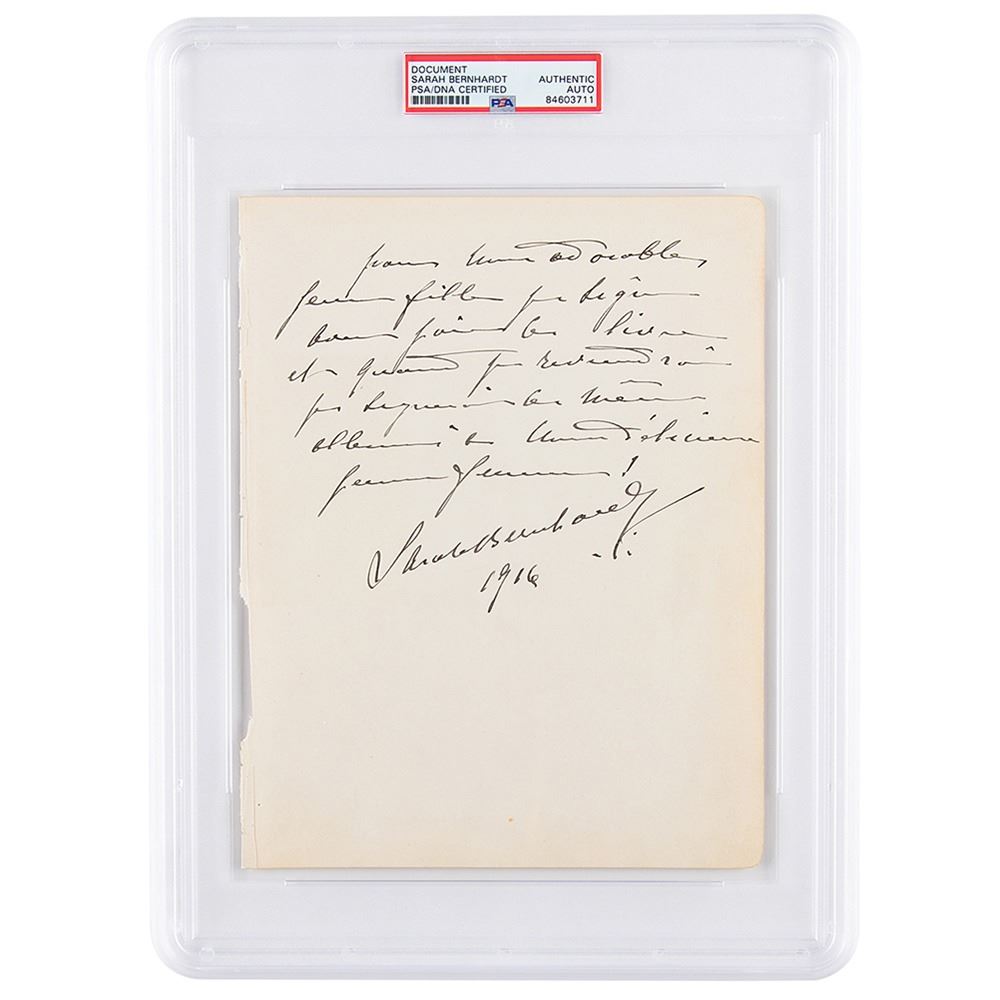 DOCUMENT
SARAH BERNHARDT
PSA/DNA CERTIFIED
AUTHENTIC
AUTO
84603711
PSA
pour une adorable
jeune fille je signe
avec joie ce livre
et quand je reviendrai
je signerai le même
album à une délicieuse
jeune femme!
Sarah Bernhardt
1916